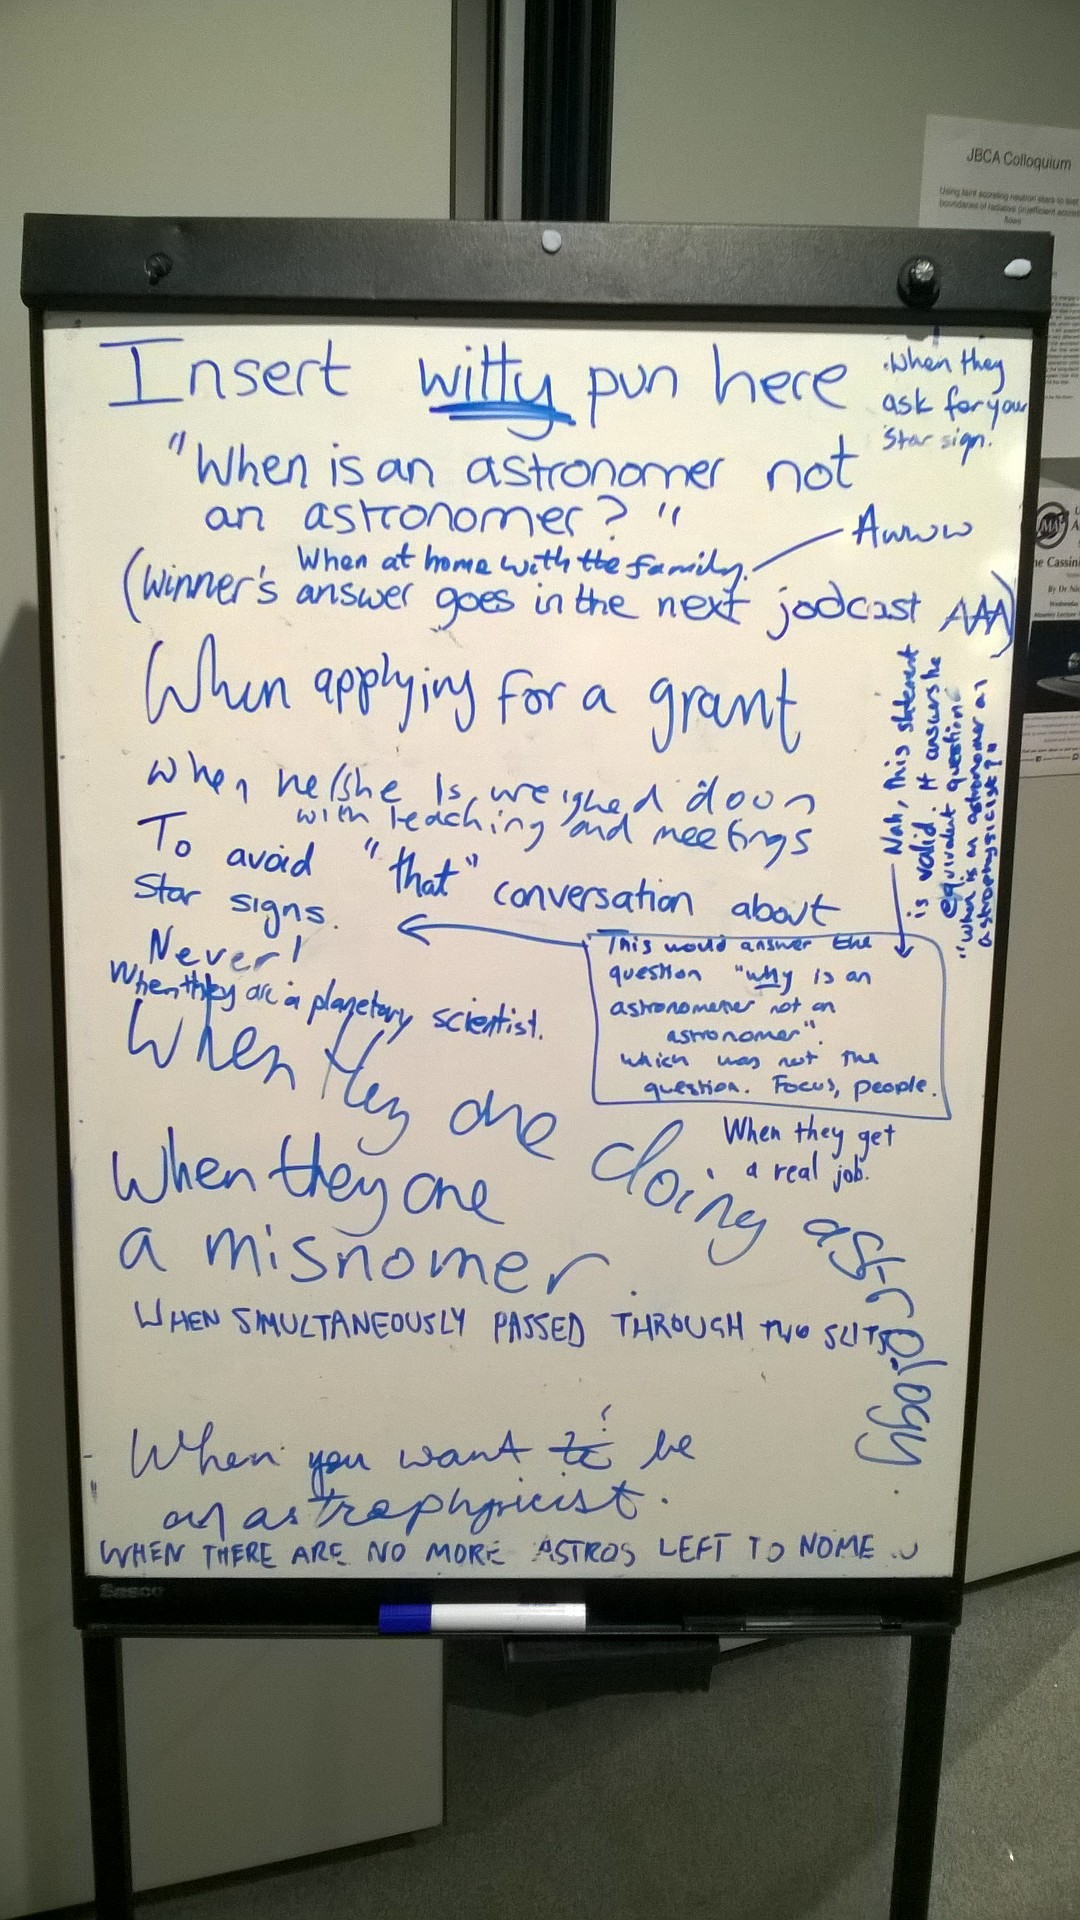 JBCA Colloquium
Using faint accreting neutron stars to test
boundaries of radiative (in)efficient accretion
flows
Insert witty pun here
.When they
ask for your
Star sign.
"When is an astronomer not
an astronomer? "
When at home with the family.
Awww
(Winner's answer goes in the next jodcast AAA)
When applying for a grant
When he/she Is weighed down
with teaching and meetings
To avoid "that" conversation about
Star signs.
Nah, this statement
is valid. It answers the
equivalent question
"when is an astronomer an
astrophysicist?"
This would answer the
question "why is an
astronomener not an
astronomer".
which was not the
question. Focus, people.
Never!
When they are a planetary scientist.
When they are doing astrology.
When they get
a real job.
When they are
a misnomer.
WHEN SIMULTANEOUSLY PASSED THROUGH TWO SLITS
When you want to be
an astrophysicist.
WHEN THERE ARE NO MORE ASTROS LEFT TO NOME
e Cassini
By Dr Nic
Wednesday
Sasco